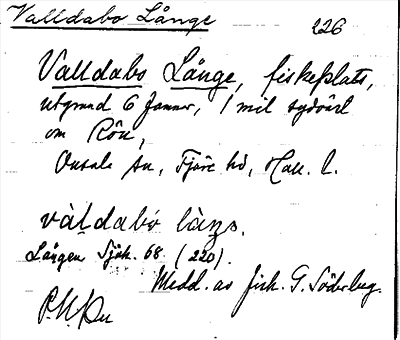 Valldabo Långe
226
Valldabo Långe, fiskeplats,
utgrund 6 famnar, 1 mil sydväst
om Rön,
Onsala sn, Fjäre hd, Hall. l.
vàldabo låŋə.
Lången Sjök. 68. (220).
Medd. av fisk. G. Söderberg.